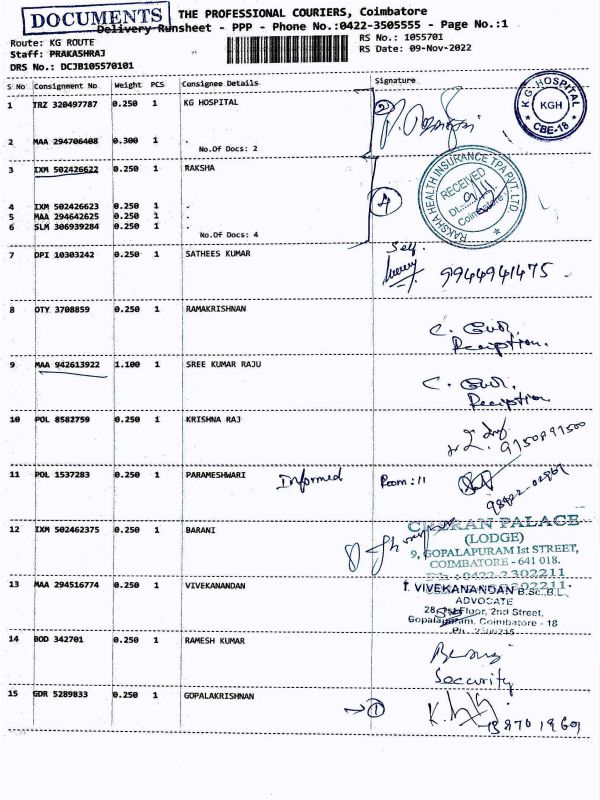 DOCUMENTS
THE PROFESSIONAL COURIERS, Coimbatore
Delivery Runsheet - PPP - Phone No.:0422-3505555 - Page No.:1
Route: KG ROUTE
Staff: PRAKASHRAJ
DRS No.: DCJB105570101
RS No.: 1055701
RS Date: 09-Nov-2022
S No Consignment No. Weight PCS Consignee Details Signature
1 TRZ 320497787 0.250 1 KG HOSPITAL
2
K.G. HOSPITAL
KGH
CBE-18
2 MAA 294706408 0.300 1 .
No.Of Docs: 2
3 IXM 502426622 0.250 1 RAKSHA
RAKSHA HEALTH INSURANCE TPA PVT. LTD
RECEIVED
Dt.
Coimbatore
4
4 IXM 502426623 0.250 1 .
5 MAA 294642625 0.250 1 .
6 SLM 306939284 0.250 1 .
No.Of Docs: 4
7 DPI 10303242 0.250 1 SATHEES KUMAR
Self
9944941475
8 OTY 3708859 0.250 1 RAMAKRISHNAN
Reciption.
9 MAA 942613922 1.100 1 SREE KUMAR RAJU
Reciption
10 POL 8582759 0.250 1 KRISHNA RAJ
11 POL 1537283 0.250 1 PARAMESHWARI Informed Room: 11
12 IXM 502462375 0.250 1 BARANI
CHARAN PALACE
(LODGE)
9, GOPALAPURAM Ist STREET,
COIMBATORE - 641 018.
Ph : 0422-2302211
13 MAA 294516774 0.250 1 VIVEKANANDAN
T. VIVEKANANDAN B.Sc.,B.L.
ADVOCATE
Floor, 2nd Street,
Gopalapuram, Coimbatore - 18
14 BOD 342701 0.250 1 RAMESH KUMAR
Security
15 GDR 5289833 0.250 1 GOPALAKRISHNAN
1